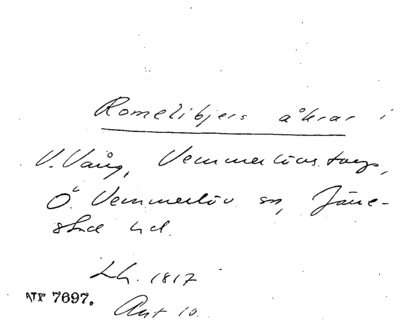 Romelibjers åkrar i
V. Vång, Vemmerlövs torp,
Ö Vemmerlöv sn, Järre-
stad hd.
Lh. 1817
NR 7697.
Akt 10.